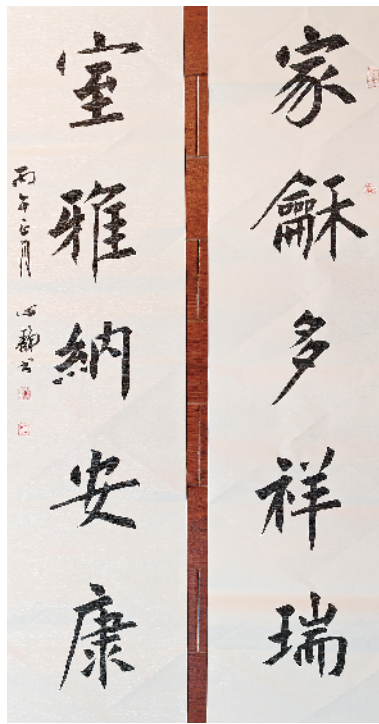 家龢多祥瑞
室雅納安康
丙午正月
心靜書